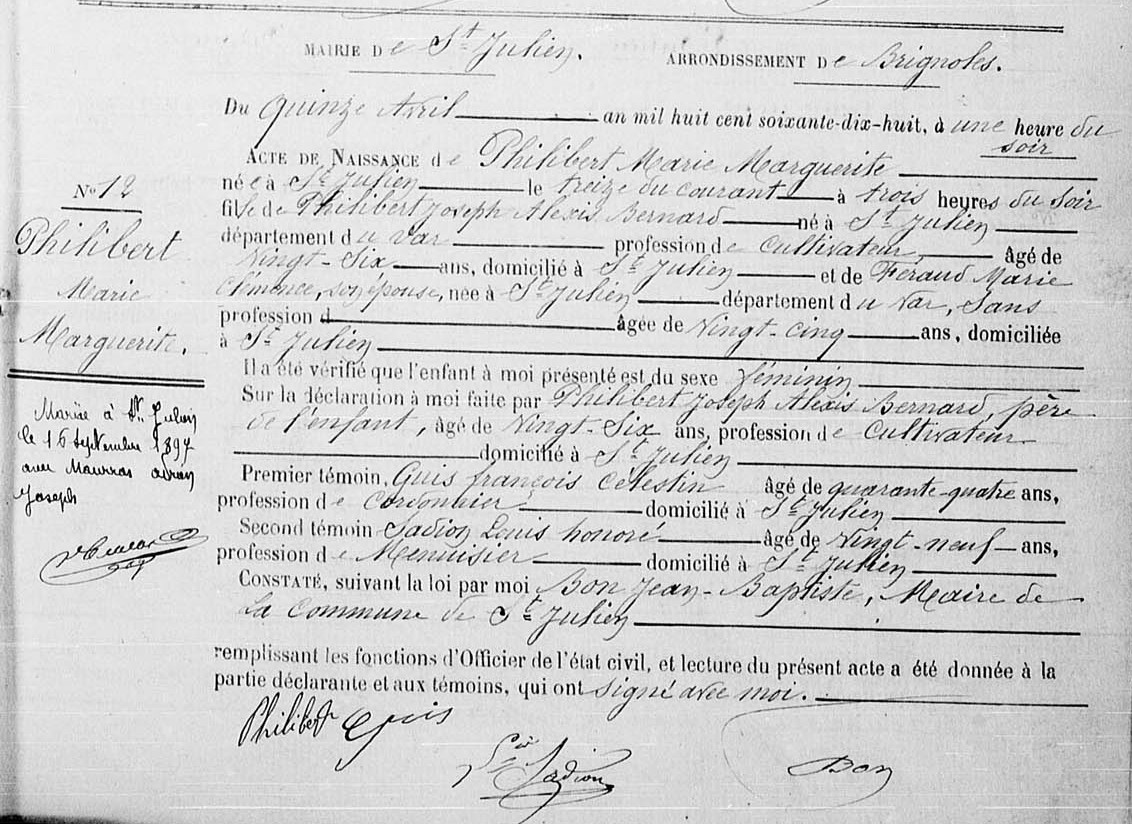 MAIRIE De St Julien. ARRONDISSEMENT De Brignoles.
Du quinze Avril an mil huit cent soixante-dix-huit, à une heure du
soir
ACTE DE NAISSANCE de Philibert Marie Marguerite
née à St Julien le treize du courant à trois heures du soir
fille de Philibert Joseph Alexis Bernard né à St Julien
département du Var profession de Cultivateur, âgé de
Vingt-Six ans, domicilié à St Julien et de Feraud Marie
Clémence, son épouse, née à St Julien département du Var, Sans
profession d âgée de Vingt-cinq ans, domiciliée
à St Julien
Il a été vérifié que l'enfant à moi présenté est du sexe féminin
Sur la déclaration à moi faite par Philibert Joseph Alexis Bernard, père
de l'enfant, âgé de Vingt-Six ans, profession de Cultivateur
domicilié à St Julien
Premier témoin, Guis françois Celestin âgé de quarante-quatre ans,
profession de Cordonnier domicilié à St Julien
Second témoin Sadion Louis honoré âgé de Vingt-neuf ans,
profession de Menuisier domicilié à St Julien
CONSTATÉ, suivant la loi par moi Bon Jean-Baptiste, Maire de
la Commune de St Julien
remplissant les fonctions d'Officier de l'état civil, et lecture du présent acte a été donnée à la
partie déclarante et aux témoins, qui ont signé avec moi.
Philibert Guis
Sadion
Bon
No 12
Philibert
Marie
Marguerite.
Mariée à St Julien
le 16 Septembre 1897
avec Maurras
Joseph